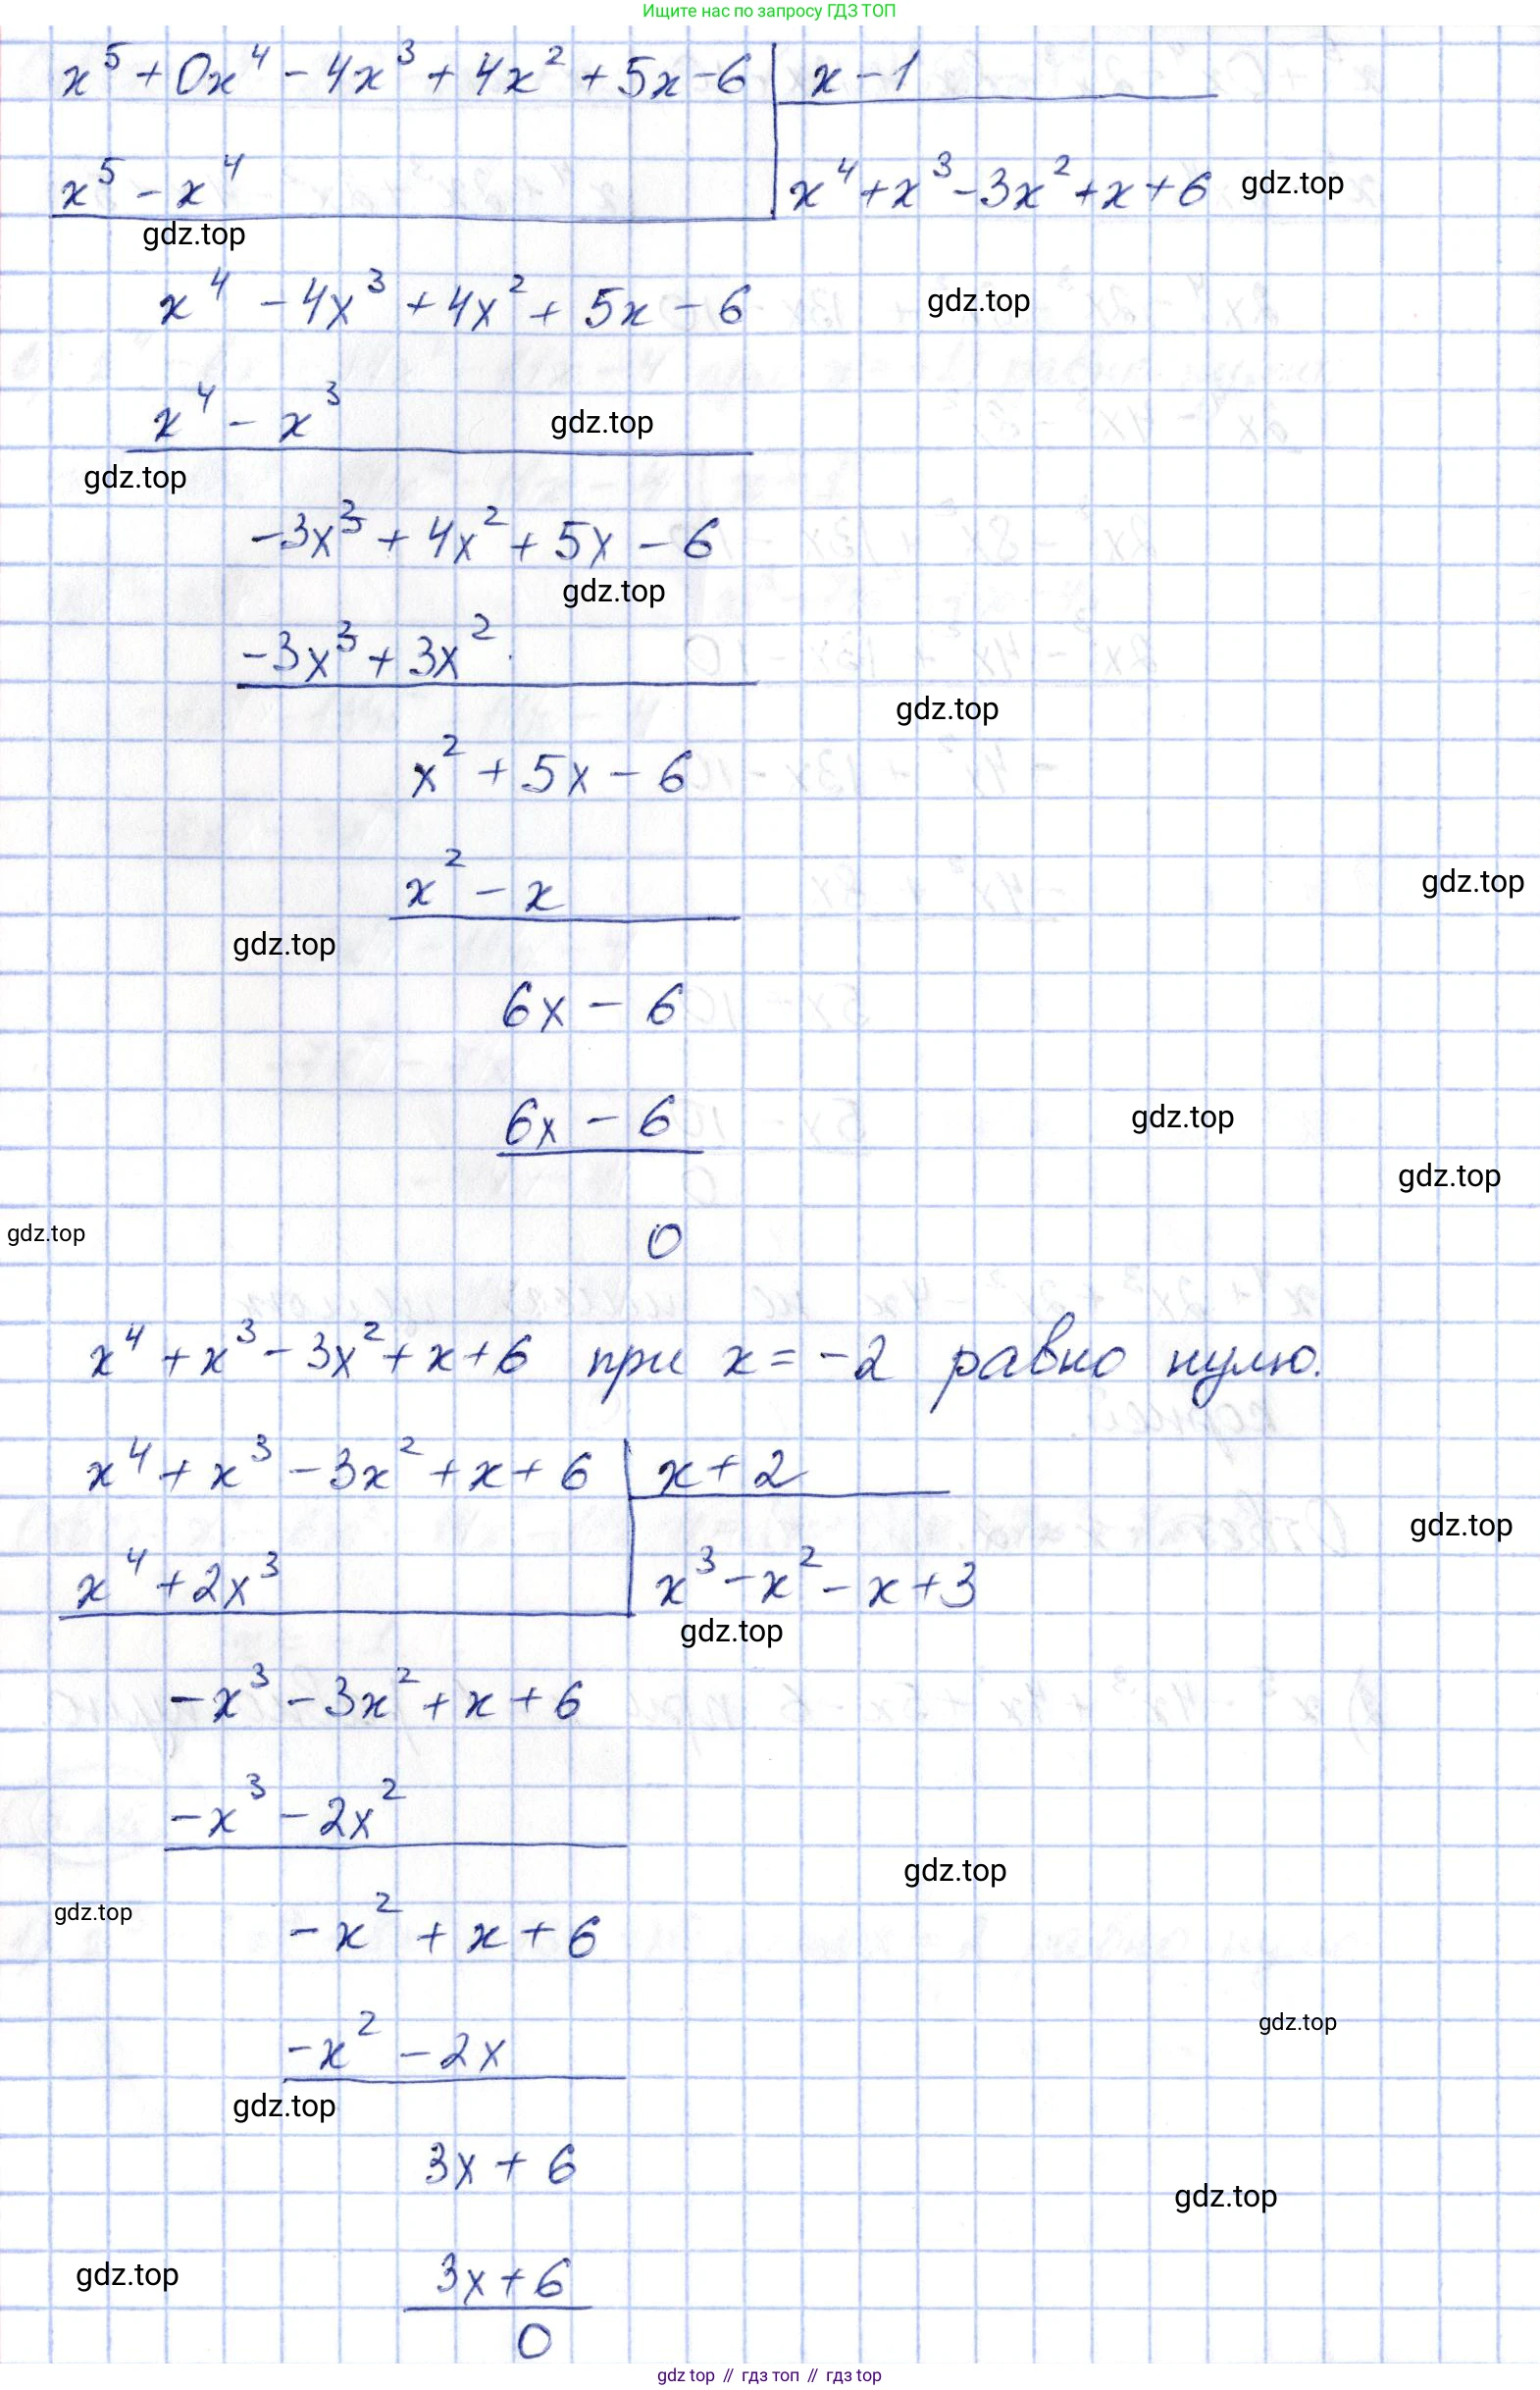 Ищите нас по запросу ГДЗ ТОП
x⁵ + 0x⁴ - 4x³ + 4x² + 5x - 6 | x - 1
x⁵ - x⁴ | x⁴ + x³ - 3x² + x + 6 gdz.top
gdz.top
x⁴ - 4x³ + 4x² + 5x - 6 gdz.top
x⁴ - x³ gdz.top
gdz.top
-3x³ + 4x² + 5x - 6
gdz.top
-3x³ + 3x²
gdz.top
x² + 5x - 6
x² - x gdz.top
gdz.top
6x - 6
6x - 6 gdz.top
gdz.top
gdz.top 0
x⁴ + x³ - 3x² + x + 6 при x = -2 равно нулю.
x⁴ + x³ - 3x² + x + 6 | x + 2
gdz.top
x⁴ + 2x³ | x³ - x² - x + 3
gdz.top
-x³ - 3x² + x + 6
-x³ - 2x²
gdz.top
gdz.top
-x² + x + 6
gdz.top
-x² - 2x
gdz.top
3x + 6
gdz.top
gdz.top 3x + 6
0
gdz top // гдз топ // гдз top